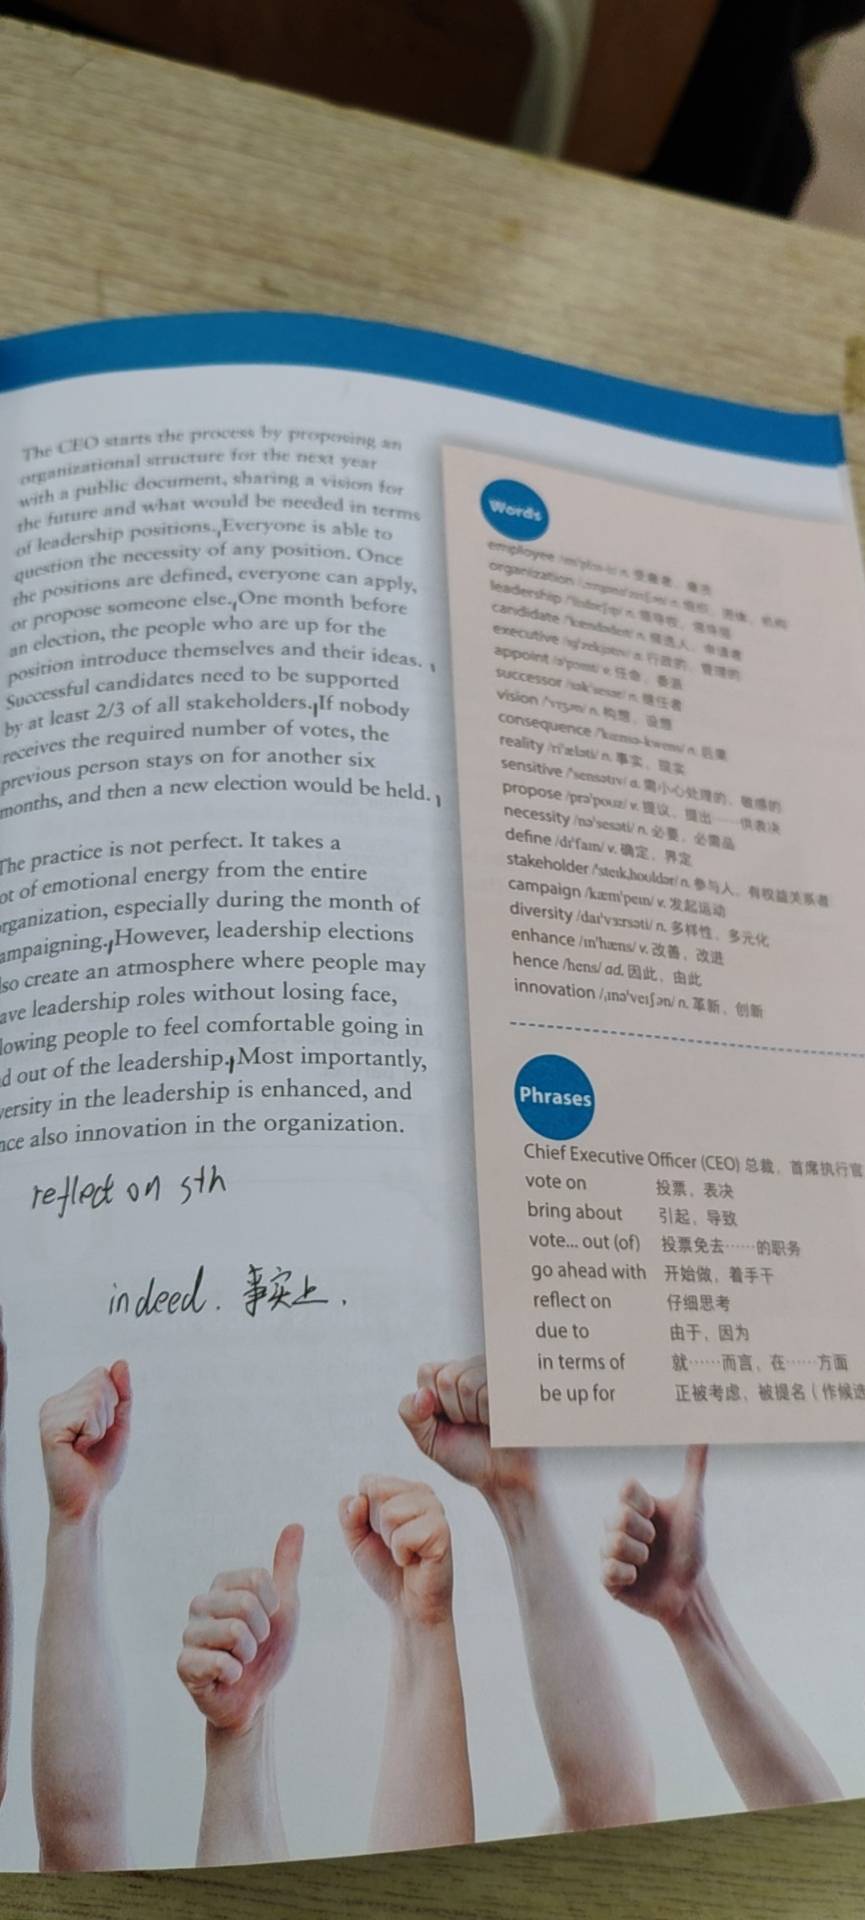 The CEO starts the process by proposing an
organizational structure for the next year
with a public document, sharing a vision for
the future and what would be needed in terms
of leadership positions. Everyone is able to
question the necessity of any position. Once
the positions are defined, everyone can apply,
or propose someone else. One month before
an election, the people who are up for the
position introduce themselves and their ideas.
Successful candidates need to be supported
by at least 2/3 of all stakeholders. If nobody
receives the required number of votes, the
previous person stays on for another six
months, and then a new election would be held.
The practice is not perfect. It takes a
ot of emotional energy from the entire
rganization, especially during the month of
ampaigning. However, leadership elections
lso create an atmosphere where people may
ave leadership roles without losing face,
lowing people to feel comfortable going in
d out of the leadership. Most importantly,
versity in the leadership is enhanced, and
nce also innovation in the organization.
reflect on sth
indeed. 事实上.
Words
employee n. 受雇者, 雇员
organization n. 组织, 团体, 机构
leadership n. 领导权, 领导层
candidate n. 候选人, 申请者
executive a. 行政的, 管理的
appoint v. 任命, 委派
successor n. 继任者
vision n. 构想, 设想
consequence n. 后果
reality n. 事实, 现实
sensitive a. 需小心处理的, 敏感的
propose /prə'pouz/ v. 提议, 提出……供表决
necessity /nə'sesəti/ n. 必要, 必需品
define /dɪ'faɪn/ v. 确定, 界定
stakeholder /'steɪk,houldər/ n. 参与人, 有权益关系者
campaign /kæm'peɪn/ v. 发起运动
diversity /daɪ'vɜrsəti/ n. 多样性, 多元化
enhance /ɪn'hæns/ v. 改善, 改进
hence /hens/ ad. 因此, 由此
innovation /,ɪnə'veɪʃən/ n. 革新, 创新
Phrases
Chief Executive Officer (CEO) 总裁, 首席执行官
vote on 投票, 表决
bring about 引起, 导致
vote... out (of) 投票免去……的职务
go ahead with 开始做, 着手干
reflect on 仔细思考
due to 由于, 因为
in terms of 就……而言, 在……方面
be up for 正被考虑, 被提名 (作候选